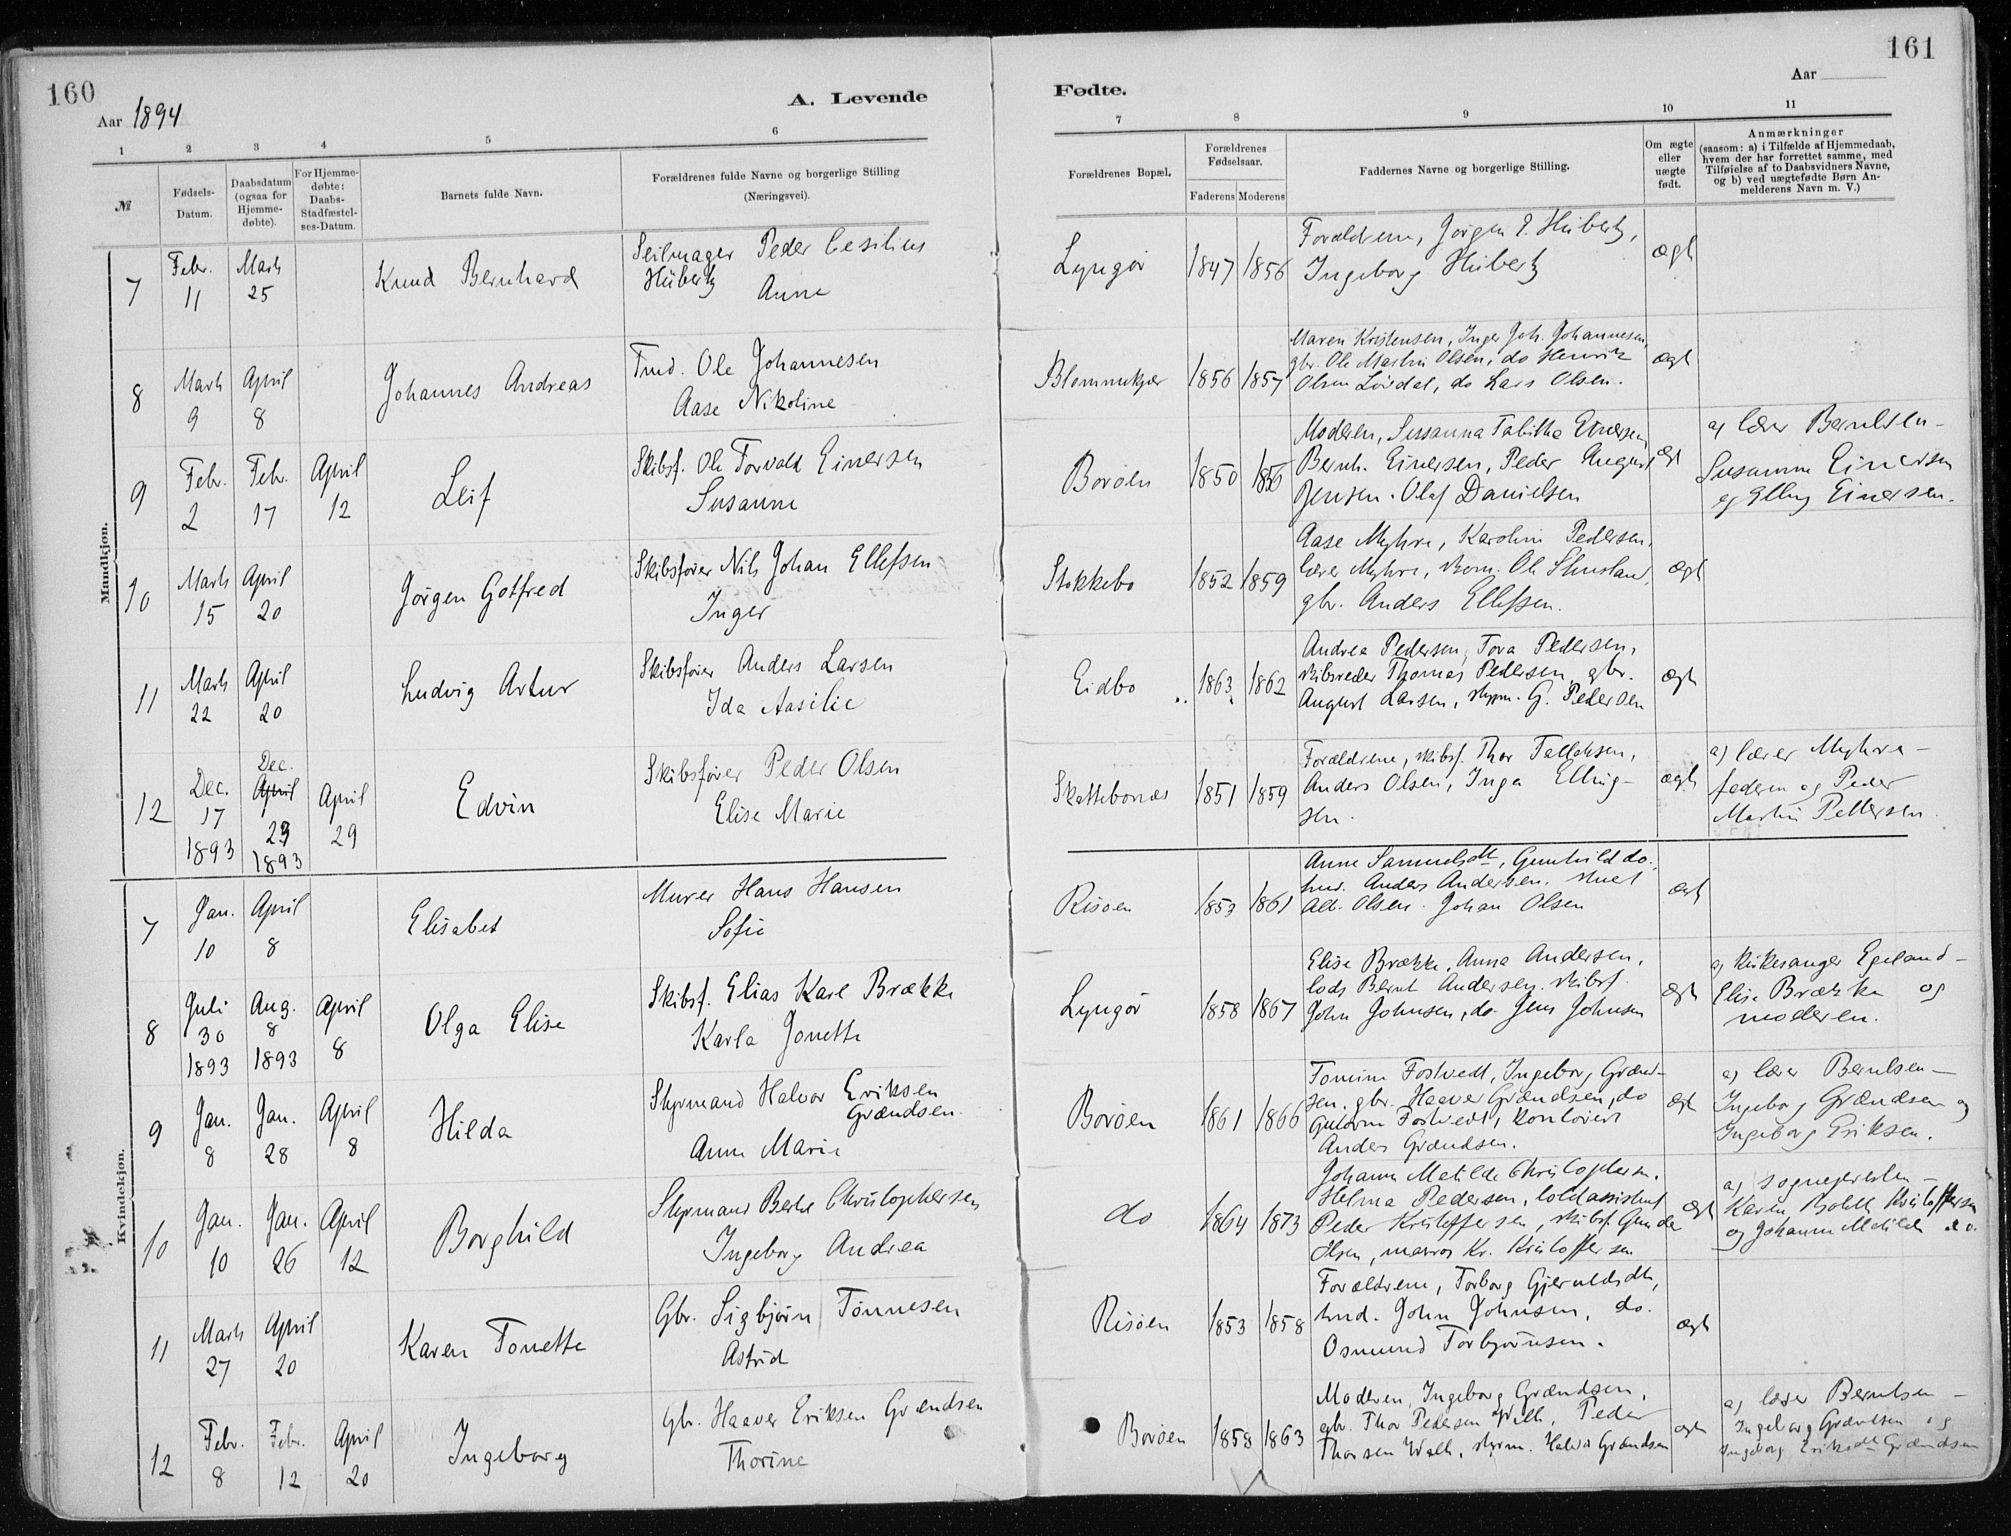 160
Aar 1894
A. Levende
1 2 3 4 5 6
№
Fødsels-Datum.
Daabsdatum (ogsaa for Hjemme-døbte).
For Hjemme-døbte: Daabs-Stadfæstel-ses-Datum.
Barnets fulde Navn.
Forældrenes fulde Navne og borgerlige Stilling
(Næringsvei).
Mandkjøn.
7 Febr. 11 Marts 25 Knud Bernhard Seilmager Peder Cesilius
Hübertz Anne
8 Marts 9 April 8 Johannes Andreas Tmd. Ole Johannesen
Aase Nikoline
9 Febr. 2 Febr. 17 April 12 Leif Skibsf. Ole Torvald Einersen
Susanne
10 Marts 15 April 20 Jørgen Gotfred Skibsfører Nils Johan Ellefsen
Inger
11 Marts 22 April 20 Ludvig Artur Skibsfører Anders Larsen
Ida Aasilie
12 Dec. 17 1893 Dec. April 29 1893 April 29 Edvin Skibsfører Peder Olsen
Elise Marie
Kvindekjøn.
7 Jan. 10 April 8 Elisabet Murer Hans Hansen
Sofie
8 Juli 30 1893 Aug. 8 1893 April 8 Olga Elise Skibsf. Elias Karl Brække
Karla Jonette
9 Jan. 8 Jan. 28 April 8 Hilda Styrmand Halvor Eriksen
Grændsen
Anne Marie
10 Jan. 10 Jan. 26 April 12 Borghild Styrmand Bertel Christophersen
Ingeborg Andrea
11 Marts 27 April 20 Karen Tonette Gbr. Sigbjørn Tønnesen
Astrid
12 Febr. 8 Febr. 12 April 20 Ingeborg Gbr. Haaver Eriksen Grændsen
Thorine
161
Aar
Fødte.
7 8 9 10 11
Forældrenes Bopæl.
Forældrenes Fødselsaar.
Faderens Moderens
Faddernes Navne og borgerlige Stilling.
Om ægte eller uægte født.
Anmærkninger
(saasom: a) i Tilfælde af Hjemmedaab,
hvem der har forrettet samme, med
Tilføielse af to Daabsvidners Navne,
og b) ved uægtefødte Børn An-
melderens Navn m. V.)
Lyngør 1847 1856 Forældrene, Jørgen P. Hübertz,
Ingeborg Hübertz ægte
1856 1857 Maren Kristensen, Inger Joh. Johannesen,
gbr. Ole Martin Olsen, do Henrik
Olsen Løvdal, do Lars Olsen. ægte
Borøen 1850 1856 Moderen, Susanna Tabitha Einersen
Bernh. Einersen, Peder August
Jensen. Olaf Danielsen ægt
a) lærer Berntsen -
Susanne Einersen
og Elling Einersen.
Stokkebo 1852 1859 Aase Myhre, Karoline Pedersen,
lærer Myhre, Ole
gbr. Anders Ellefsen. ægte
Eidbo 1863 1862 Andrea Pedersen, Tora Pedersen,
skibsreder Thomas Pedersen, gbr.
August Larsen, styrm. G. Pedersen ægte
Skattebonæs 1851 1859 Forældrene, skibsf. Thor Tallaksen,
Anders Olsen, Inga Elling-
sen. ægte
a) lærer Myhre -
faderen og Peder
Martin Pettersen.
Risøen 1853 1861 Anne Samuelsdtt, Gunhild do.
tmd. Anders Andersen.
Olsen. Johan Olsen ægte
Lyngør 1858 1867 Elise Brække, Anna Andersen,
lods Bernt Andersen, skibsf.
John Johnsen, do. Jens Johnsen ægte
a) kirkesanger Egeland -
Elise Brække og
moderen.
Borøen 1861 1866 Tomine Fostvedt, Ingeborg Grænd-
sen, gbr. Haaver Grændsen, do
Guttorm Fostvedt, kontorist
Anders Grændsen. ægte
a) lærer Berntsen -
Ingeborg Grændsen og
Ingeborg Eriksen.
do 1864 1873 Johanne Matilde Christophersen,
Helma Pedersen, toldassistent
Peder Kristoffersen, skibsf. Gunder
Olsen, matros Kr. Kristoffersen ægte
a) sognepresten -
Karen Bolette Kristoffersen
og Johanne Matilde do.
Risøen 1853 1858 Forældrene, Torborg Gjeruldsdtr,
tmd. John Johnsen, do.
Osmund Torbjørnsen. ægte
Borøen 1858 1863 Moderen, Ingeborg Grændsen,
gbr. Thor Pedersen Walle, Peder
Thorsen Walle, styrm. Halvor Grændsen ægte
a) lærer Berntsen -
Ingeborg Grændsen og
Ingeborg Eriksdtr Grændsen